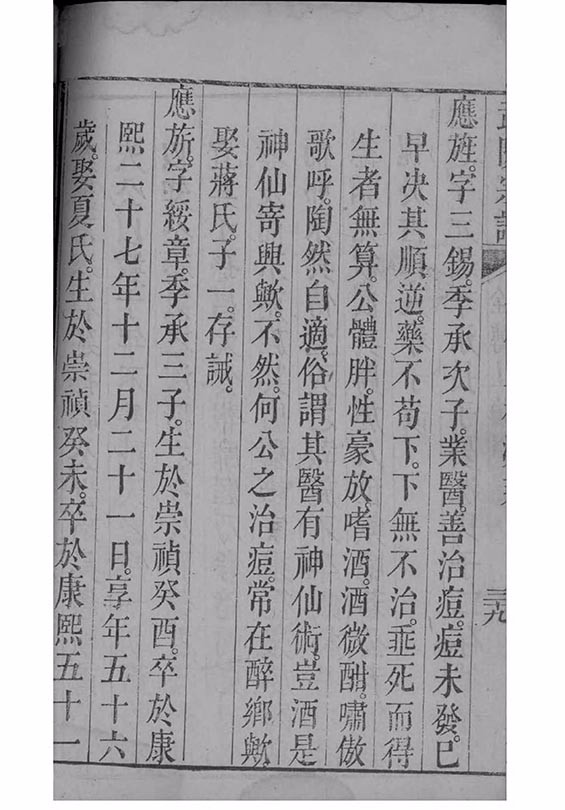 應旌。字三錫。季承次子。業醫。善治痘。痘未發。已
早决其順。逆。藥不苟下。下無不治。垂死而得
生者無算。公體胖。性豪放。嗜酒。酒微酣。嘯傲
歌呼。陶然自適。俗謂其醫有神仙術。豈酒是
神仙寄興歟。不然。何公之治痘。常在醉鄉歟
娶蔣氏。子一。存誠。
應旂。字綏章。季承三子。生於崇禎癸酉。卒於康
熙二十七年十二月二十一日。享年五十六
歲。娶夏氏。生於崇禎癸未。卒於康熙五十一